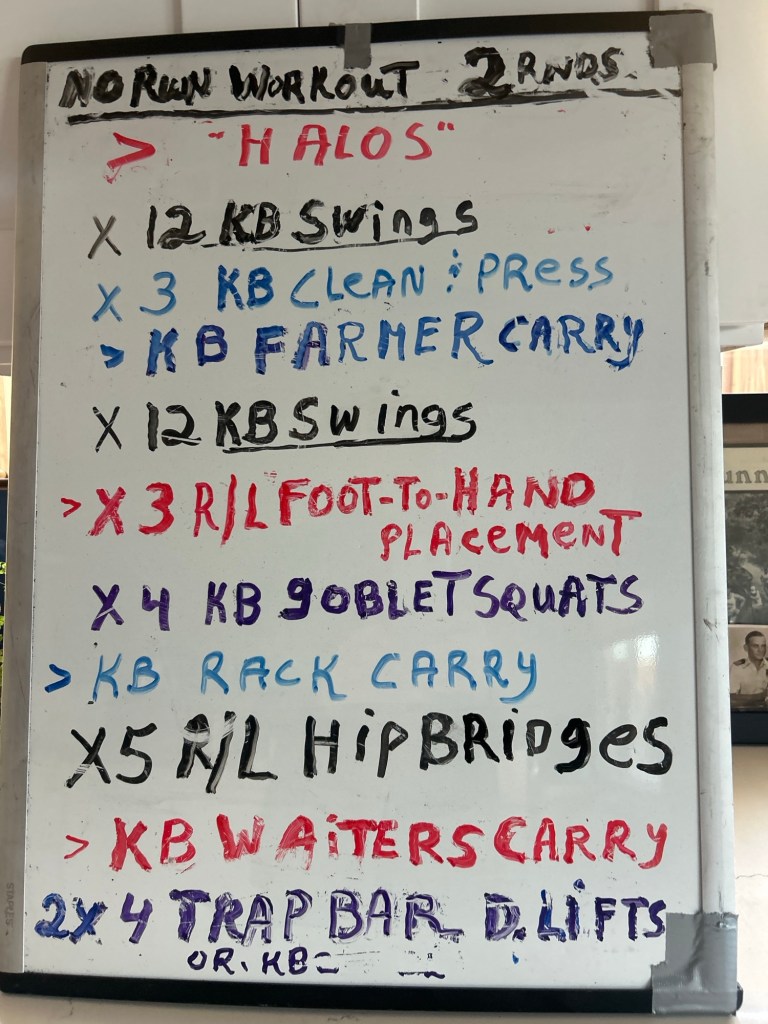 NO RUN WORKOUT 2 RNDS.
> "HALOS"
X 12 KB Swings
X 3 KB CLEAN & PRESS
> KB FARMER CARRY
X 12 KB Swings
> X 3 R/L FOOT-TO-HAND
PLACEMENT
X 4 KB gOBLET SQUATS
> KB RACK CARRY
X5 R/L HipBRidges
> KB WAiTERS CARRY
2X 4 TRAP BAR D. LiFTS
OR. KB=